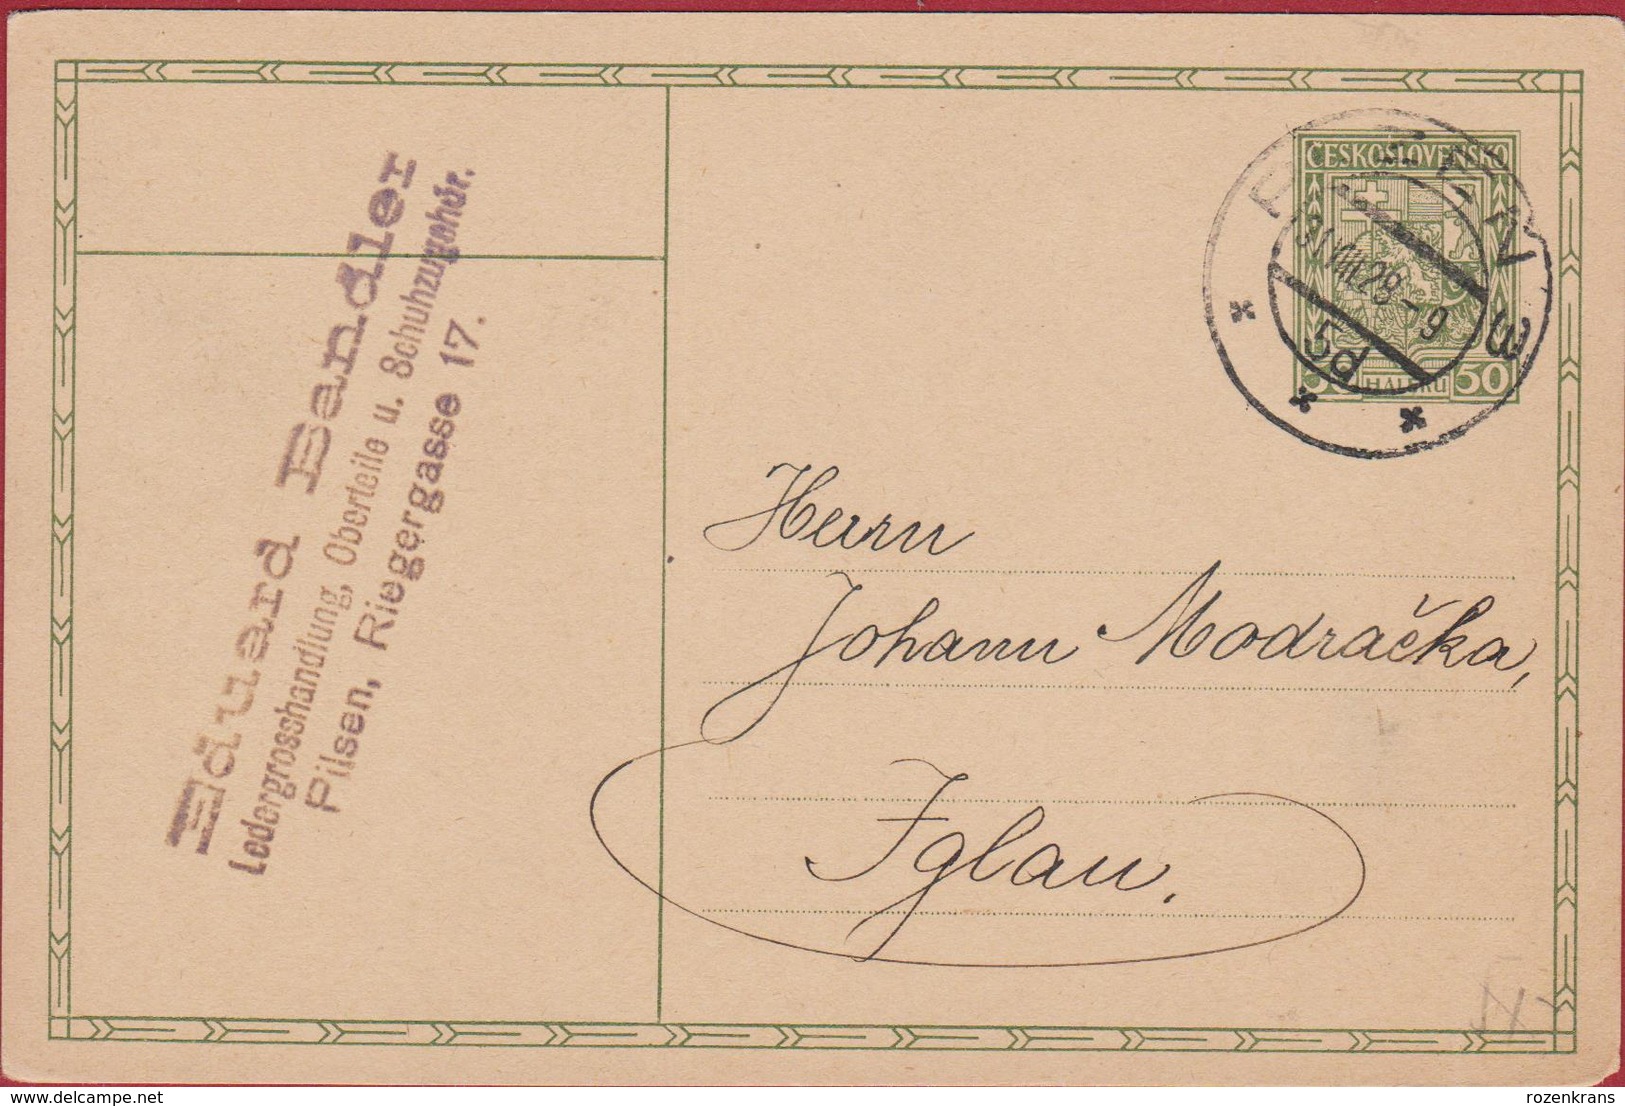 Eduard Bandler
Ledergrosshandlung, Oberteile u. Schuhzugehör.
Pilsen, Riegergasse 17.
ČESKOSLOVENSKO
50 HALÉŘŮ 50
PLZEŇ 3
31.VIII.28-9
5d
Herrn
Johann Modračka,
Iglau.
delcampe.net
rozenkrans